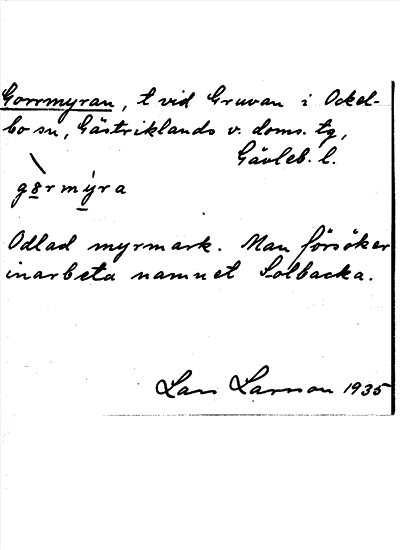 Gorrmyran, t vid Gruvan i Ockel-
bo sn, Gästriklands v. doms. tg,
Gävleb. l.
g8rmýra
Odlad myrmark. Man försöker
inarbeta namnet Solbacka.
Lars Larsson 1935